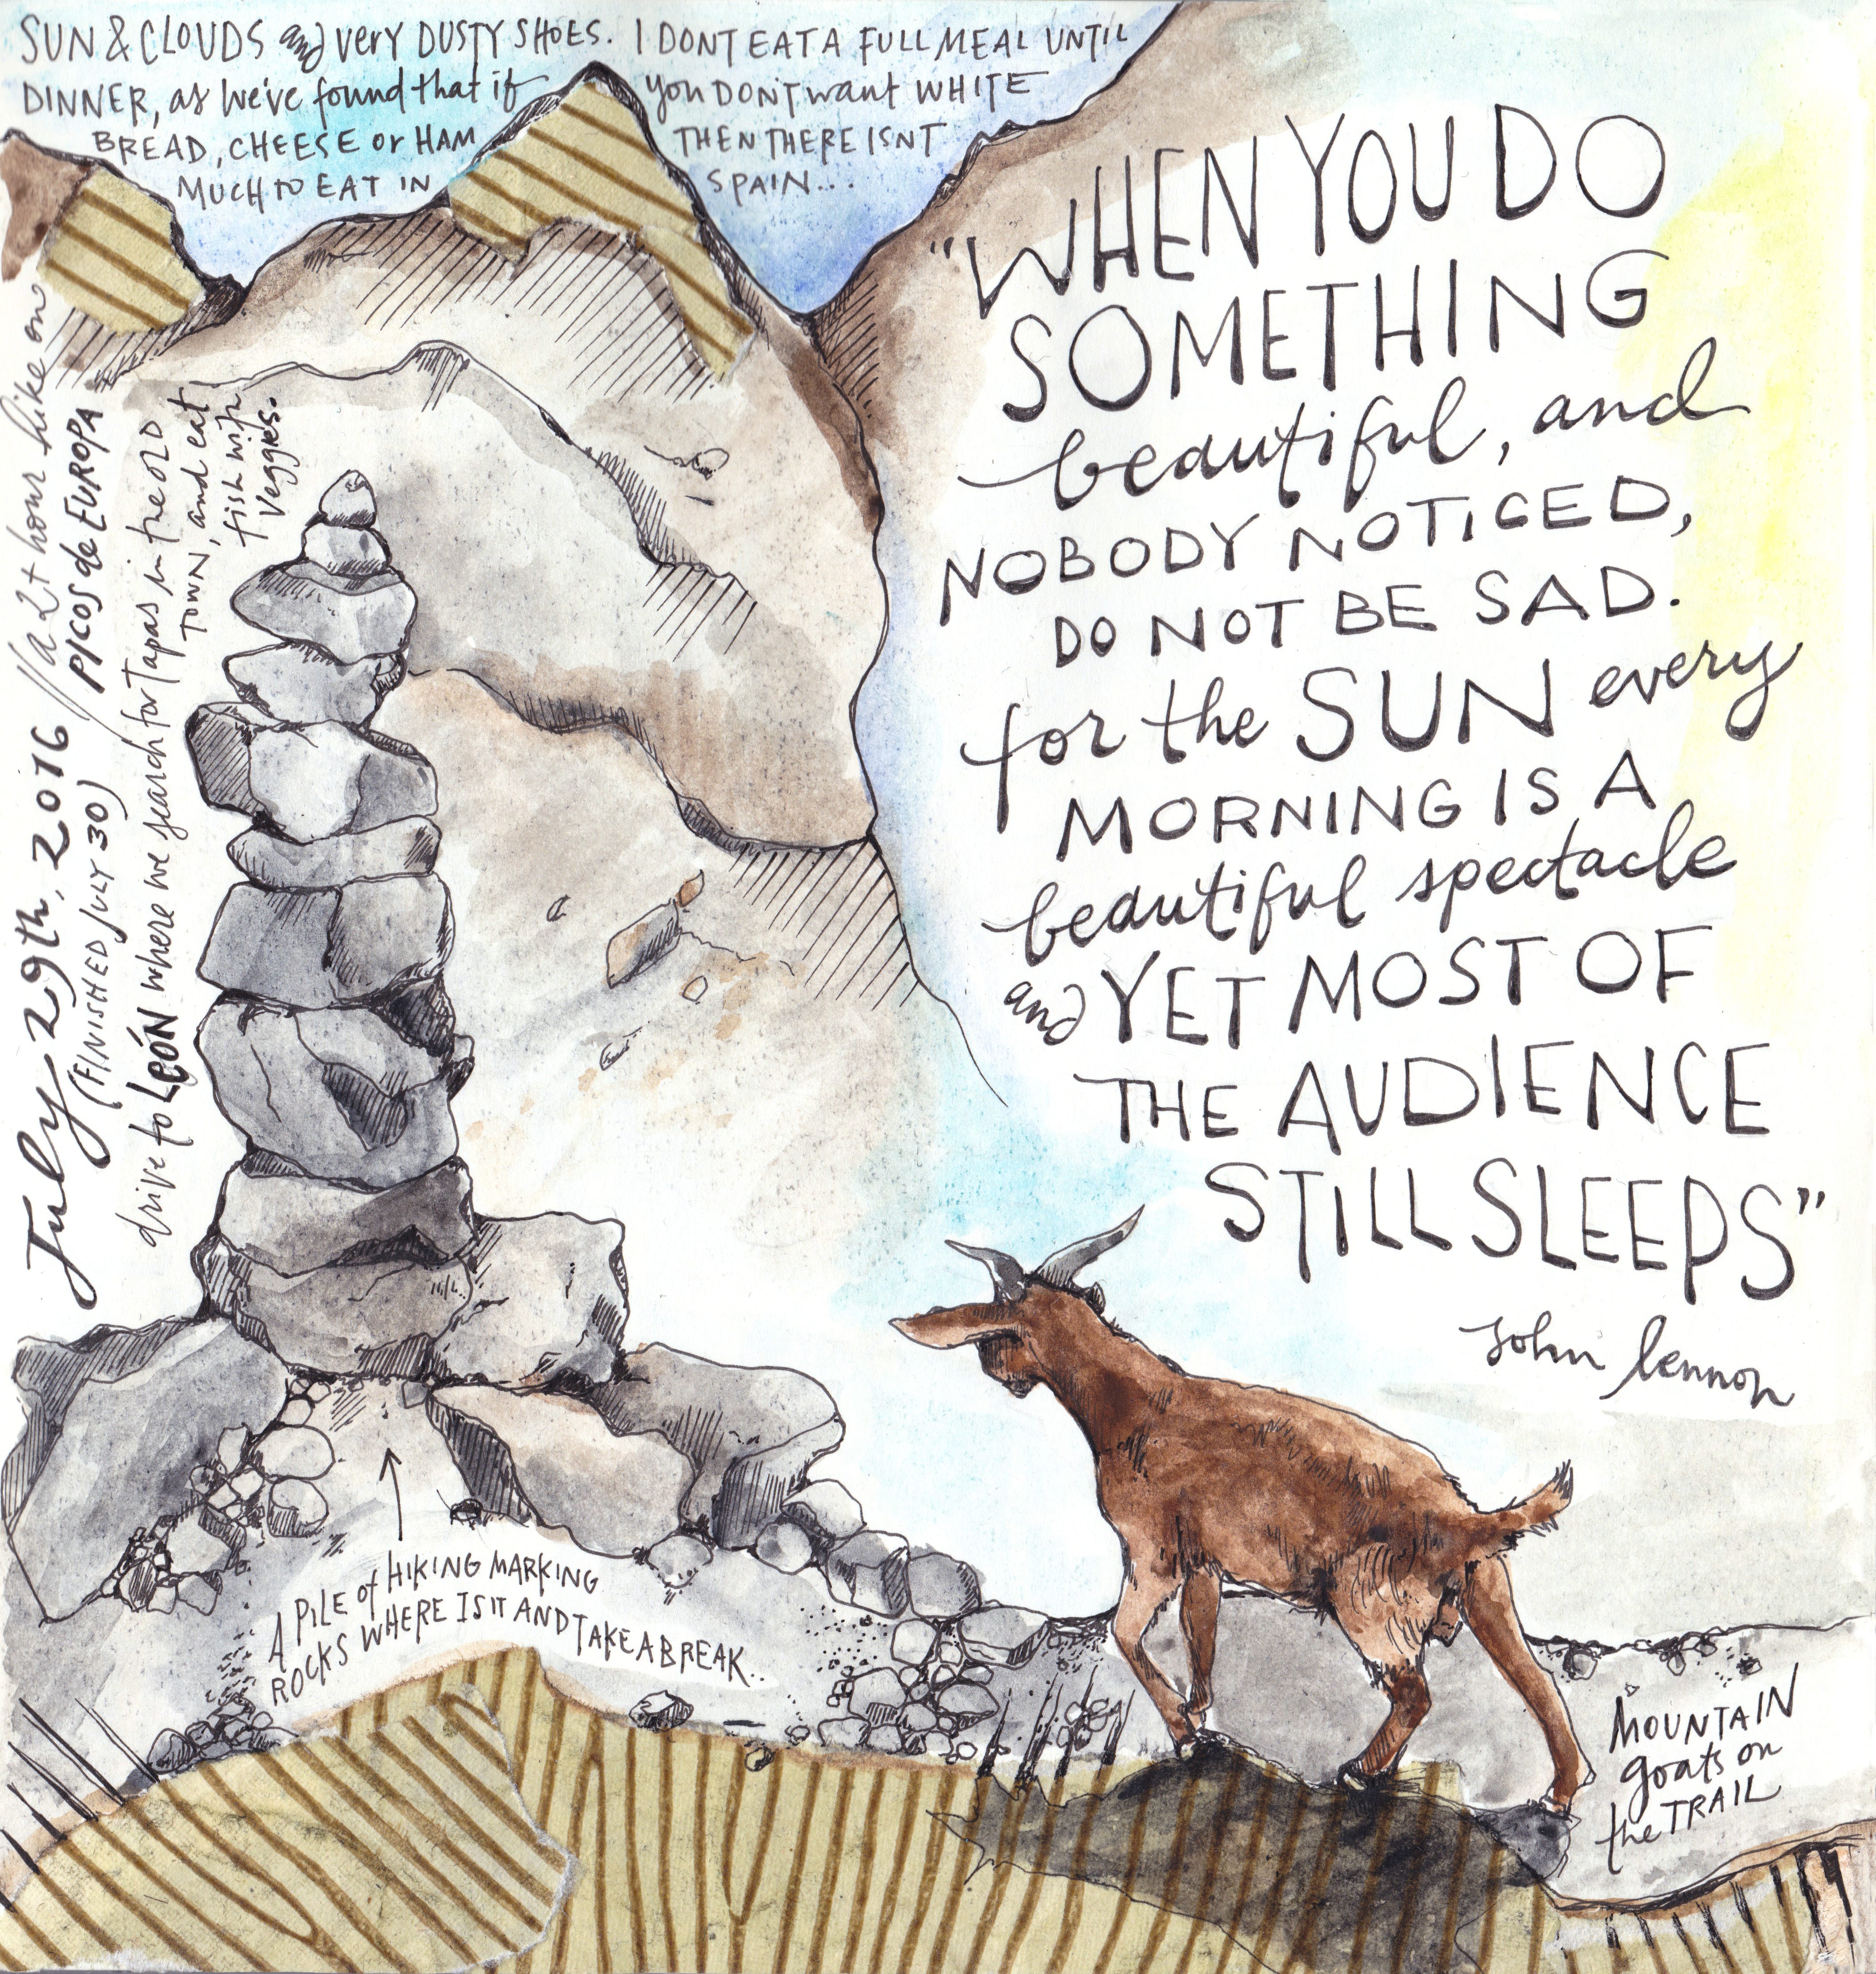 SUN & CLOUDS and very DUSTY SHOES. I DONT EAT A FULL MEAL UNTIL
DINNER, as we've found that if you DON'T want WHITE
BREAD, CHEESE or HAM THEN THERE ISNT
MUCH TO EAT IN SPAIN...
July 29th, 2016 // a 2+ hour hike on
(FINISHED JULY 30) PICOS de EUROPA
drive to LEÓN where we search for Tapas in the OLD
TOWN, and eat
fish with
Veggies.
"WHEN YOU DO
SOMETHING
beautiful, and
NOBODY NOTICED,
DO NOT BE SAD.
for the SUN every
MORNING IS A
beautiful spectacle
and YET MOST OF
THE AUDIENCE
STILL SLEEPS"
John Lennon
A PILE of HIKING MARKING
ROCKS WHERE I SIT AND TAKE A BREAK..
MOUNTAIN
goats on
the TRAIL